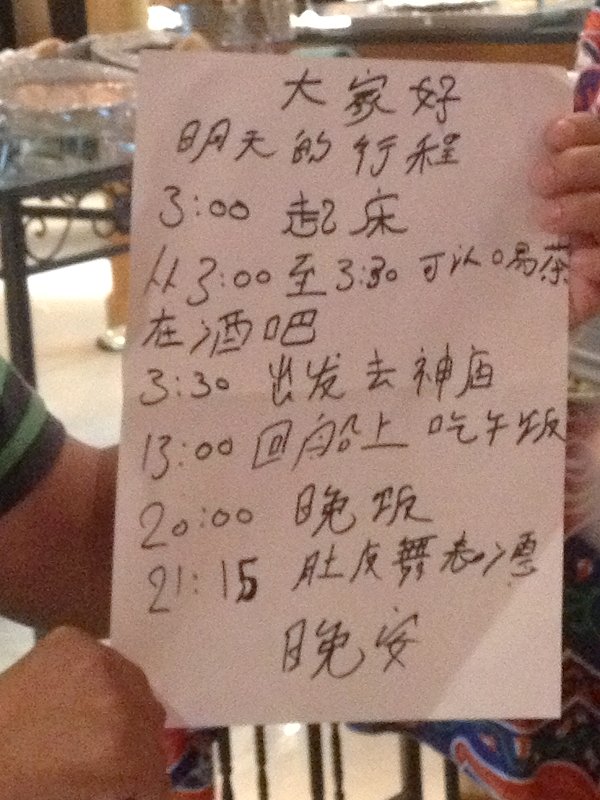 大家好
明天的行程
3:00 起床
从3:00至3:30 可以喝茶
在酒吧
3:30 出发去神庙
13:00 回船上 吃午饭
20:00 晚饭
21:15 肚皮舞表演
晚安